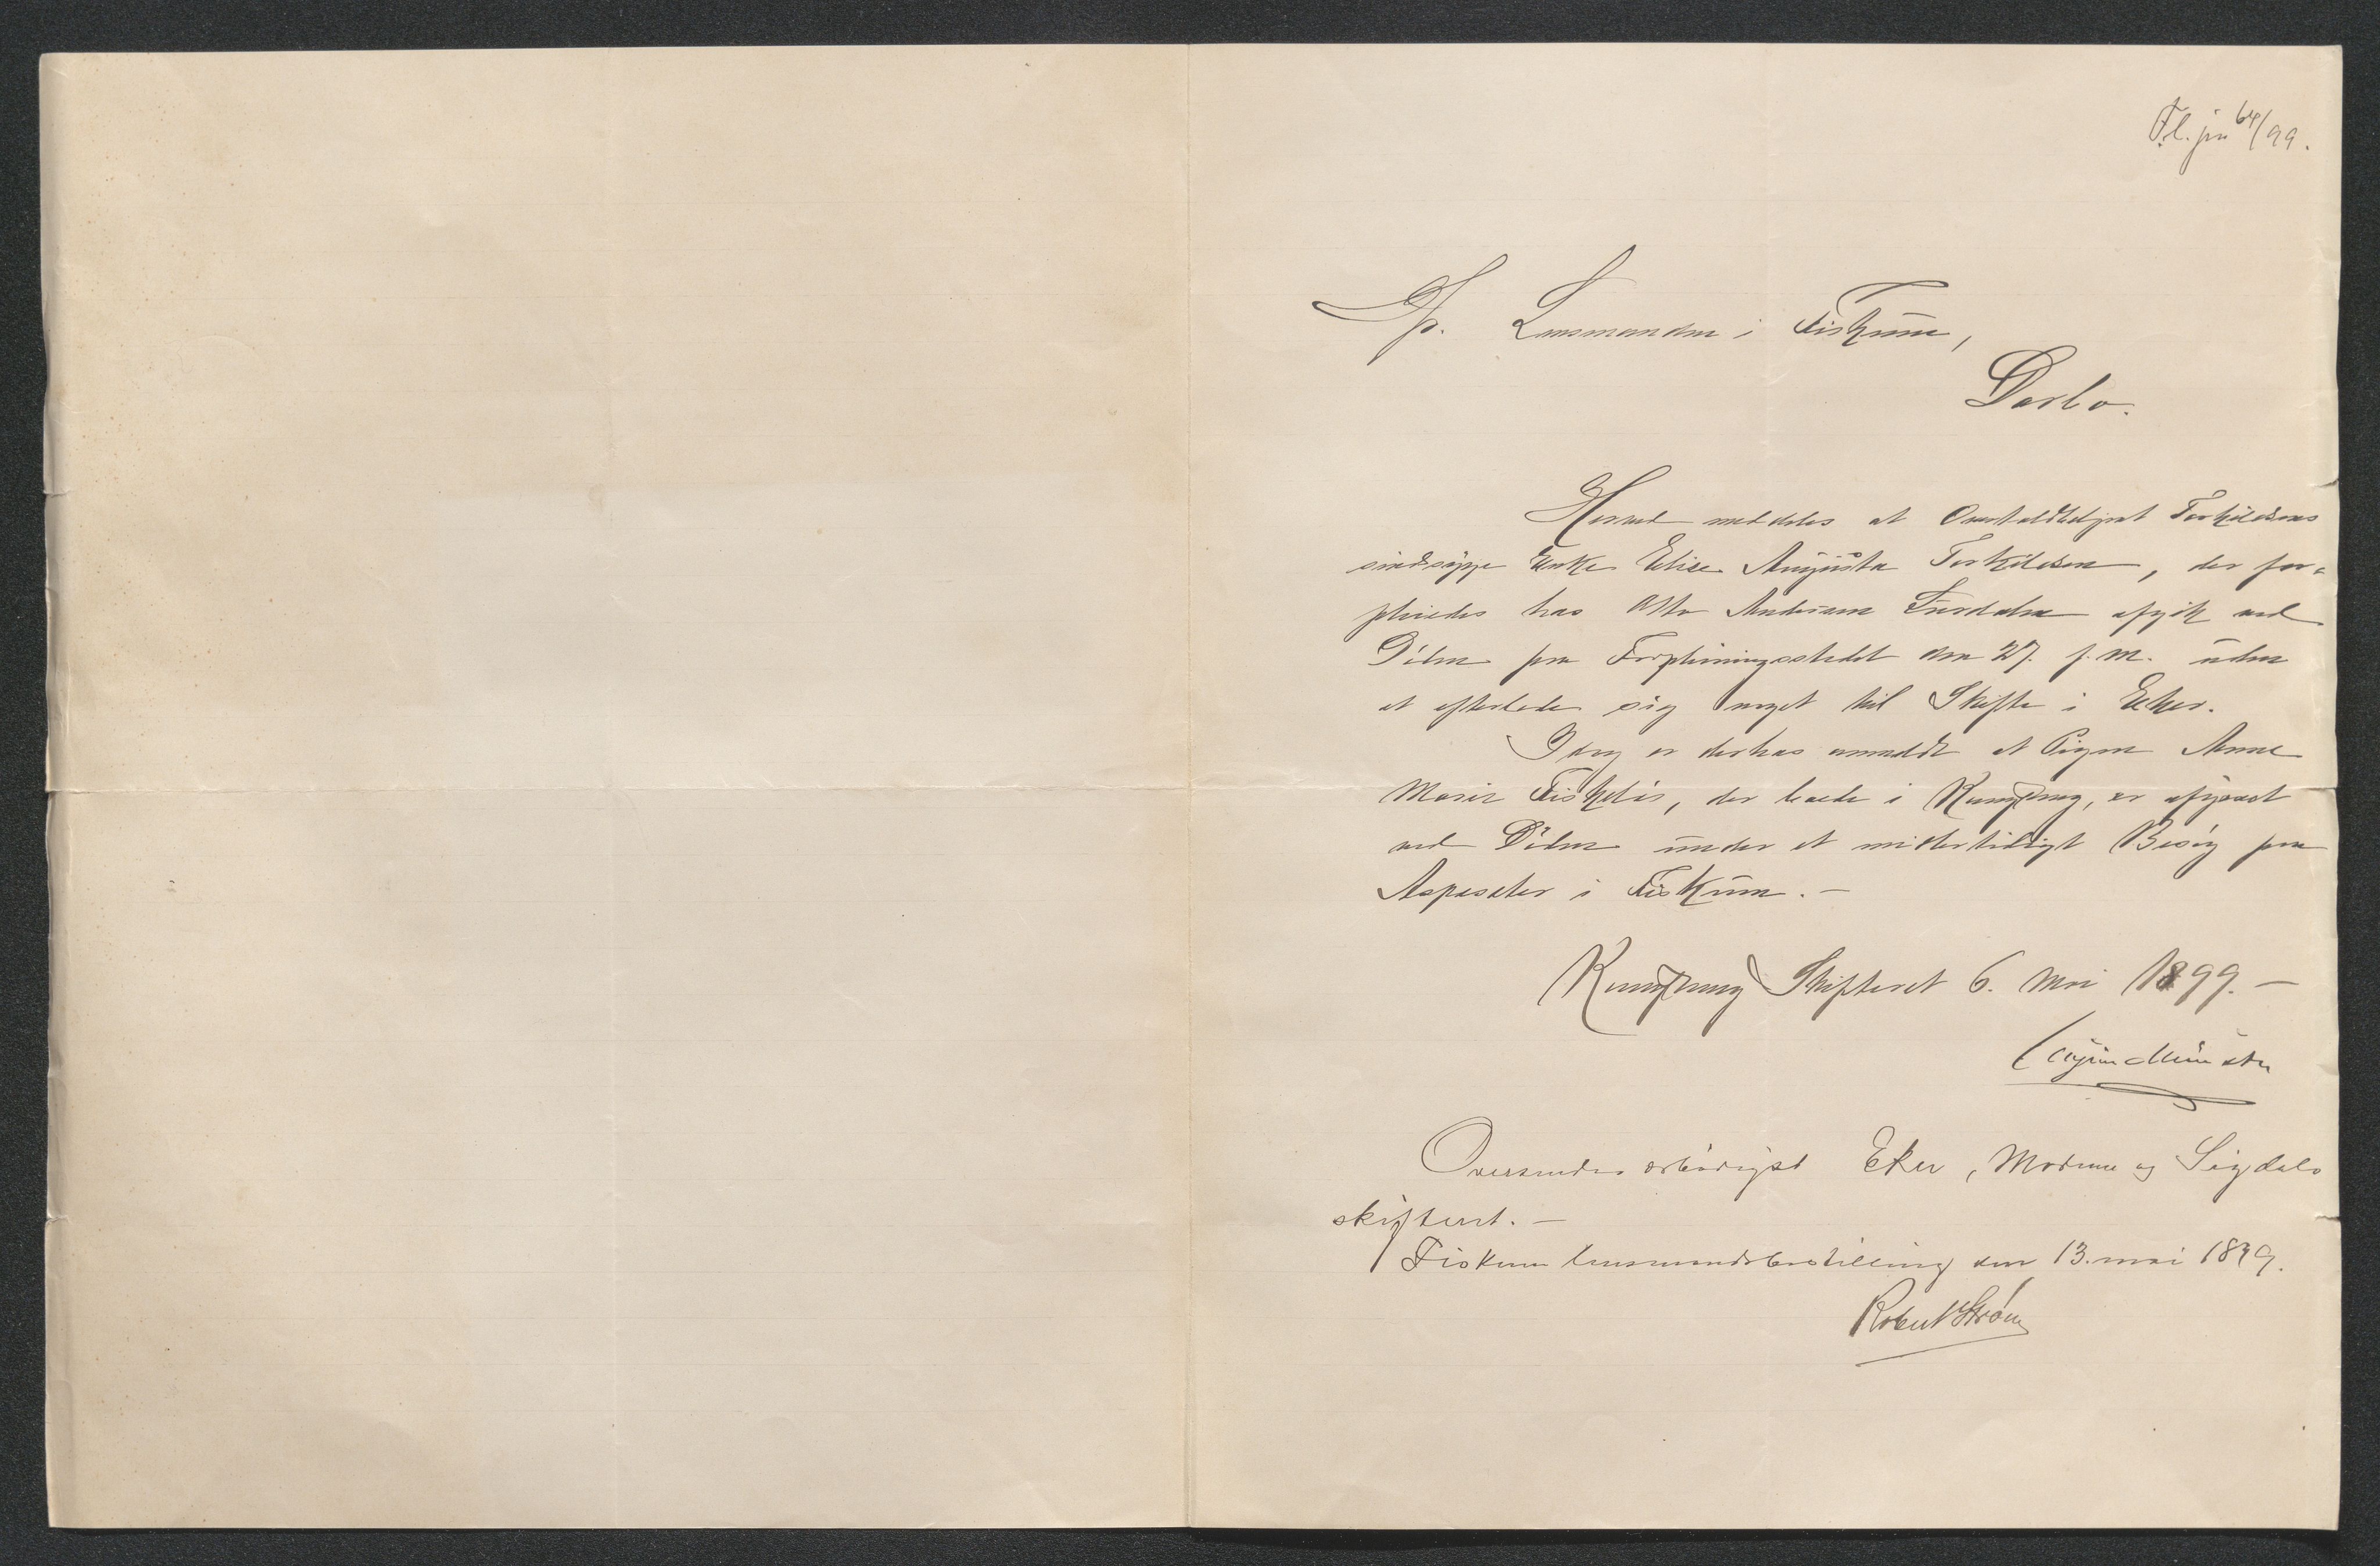 F.l. jnr 64/99.
Hr. Lensmanden i Fiskum,
Darbo.
Herved meddeles at Overtoldbetjent Torkildsens
sindssyge Enke Elise Augusta Torkildsen, der for-
pleiedes hos Otto Andersen afgik ved
Døden paa Forpleiningsstedet den 27. f. M. uden
at efterlade sig noget til Skifte i Eker.
Idag er derhos anmeldt at Pigen Anne
Marie, der boede i Kongsberg, er afgaaet
ved Døden under et midlertidigt Besøg paa
Aspeseter i Fiskum. —
Kongsberg Skifteret 6. Mai 1899. —
Oversendes ærbødigst Eker, Modum og Sigdals
skifteret. —
Fiskum lensmandsbestilling den 13. mai 1899.
Robert Strøm